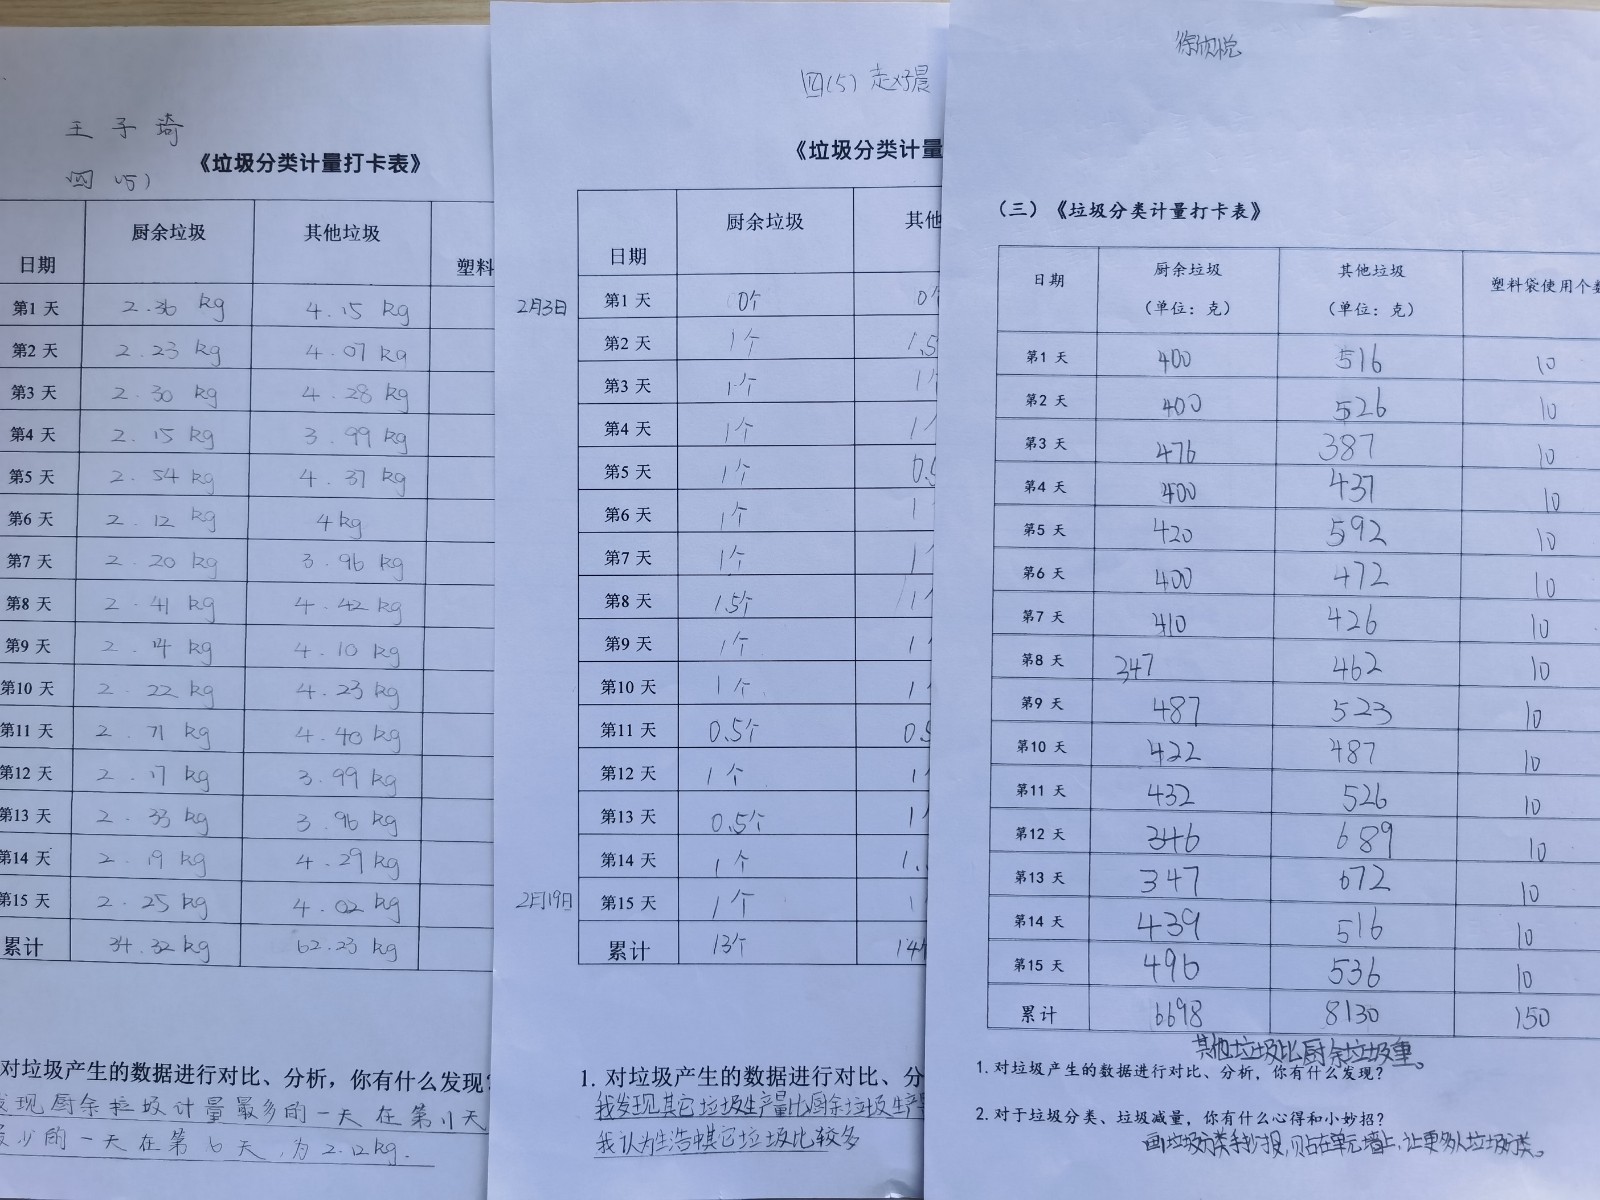 王子琦
四(5)
《垃圾分类计量打卡表》
日期 厨余垃圾 其他垃圾 塑料
第1天 2.36 kg 4.15 kg
第2天 2.23 kg 4.07 kg
第3天 2.30 kg 4.28 kg
第4天 2.15 kg 3.99 kg
第5天 2.54 kg 4.37 kg
第6天 2.12 kg 4kg
第7天 2.20 kg 3.96 kg
第8天 2.41 kg 4.42 kg
第9天 2.14 kg 4.10 kg
第10天 2.22 kg 4.23 kg
第11天 2.71 kg 4.40 kg
第12天 2.17 kg 3.99 kg
第13天 2.33 kg 3.96 kg
第14天 2.19 kg 4.29 kg
第15天 2.25 kg 4.02 kg
累计 34.32 kg 62.23 kg
对垃圾产生的数据进行对比、分析，你有什么发现?
发现厨余垃圾计量最多的一天在第11天
最少的一天在第6天,为2.12kg.
四(5)
《垃圾分类计量
日期 厨余垃圾 其他
2月3日 第1天 0个 0个
第2天 1个 1.5
第3天 1个 1个
第4天 1个 1个
第5天 1个 0.5
第6天 1个 1
第7天 1个 1个
第8天 1.5个 1个
第9天 1个 1
第10天 1个 1
第11天 0.5个 0.5
第12天 1个 1
第13天 0.5个 1
第14天 1个 1.
2月19日 第15天 1个 1
累计 13个 14个
1. 对垃圾产生的数据进行对比、分
我发现其它垃圾生产量比厨余垃圾生产量
我认为生活中其它垃圾比较多
徐欣悦
（三）《垃圾分类计量打卡表》
日期 厨余垃圾 其他垃圾 塑料袋使用个数
（单位：克） （单位：克）
第1天 400 516 10
第2天 400 526 10
第3天 476 387 10
第4天 400 437 10
第5天 420 592 10
第6天 400 472 10
第7天 410 426 10
第8天 347 462 10
第9天 487 523 10
第10天 422 487 10
第11天 432 526 10
第12天 346 689 10
第13天 347 672 10
第14天 439 516 10
第15天 496 536 10
累计 6698 8130 150
其他垃圾比厨余垃圾重。
1. 对垃圾产生的数据进行对比、分析，你有什么发现？
2. 对于垃圾分类、垃圾减量，你有什么心得和小妙招？
画垃圾分类手抄报,贴在单元墙上,让更多人垃圾分类。